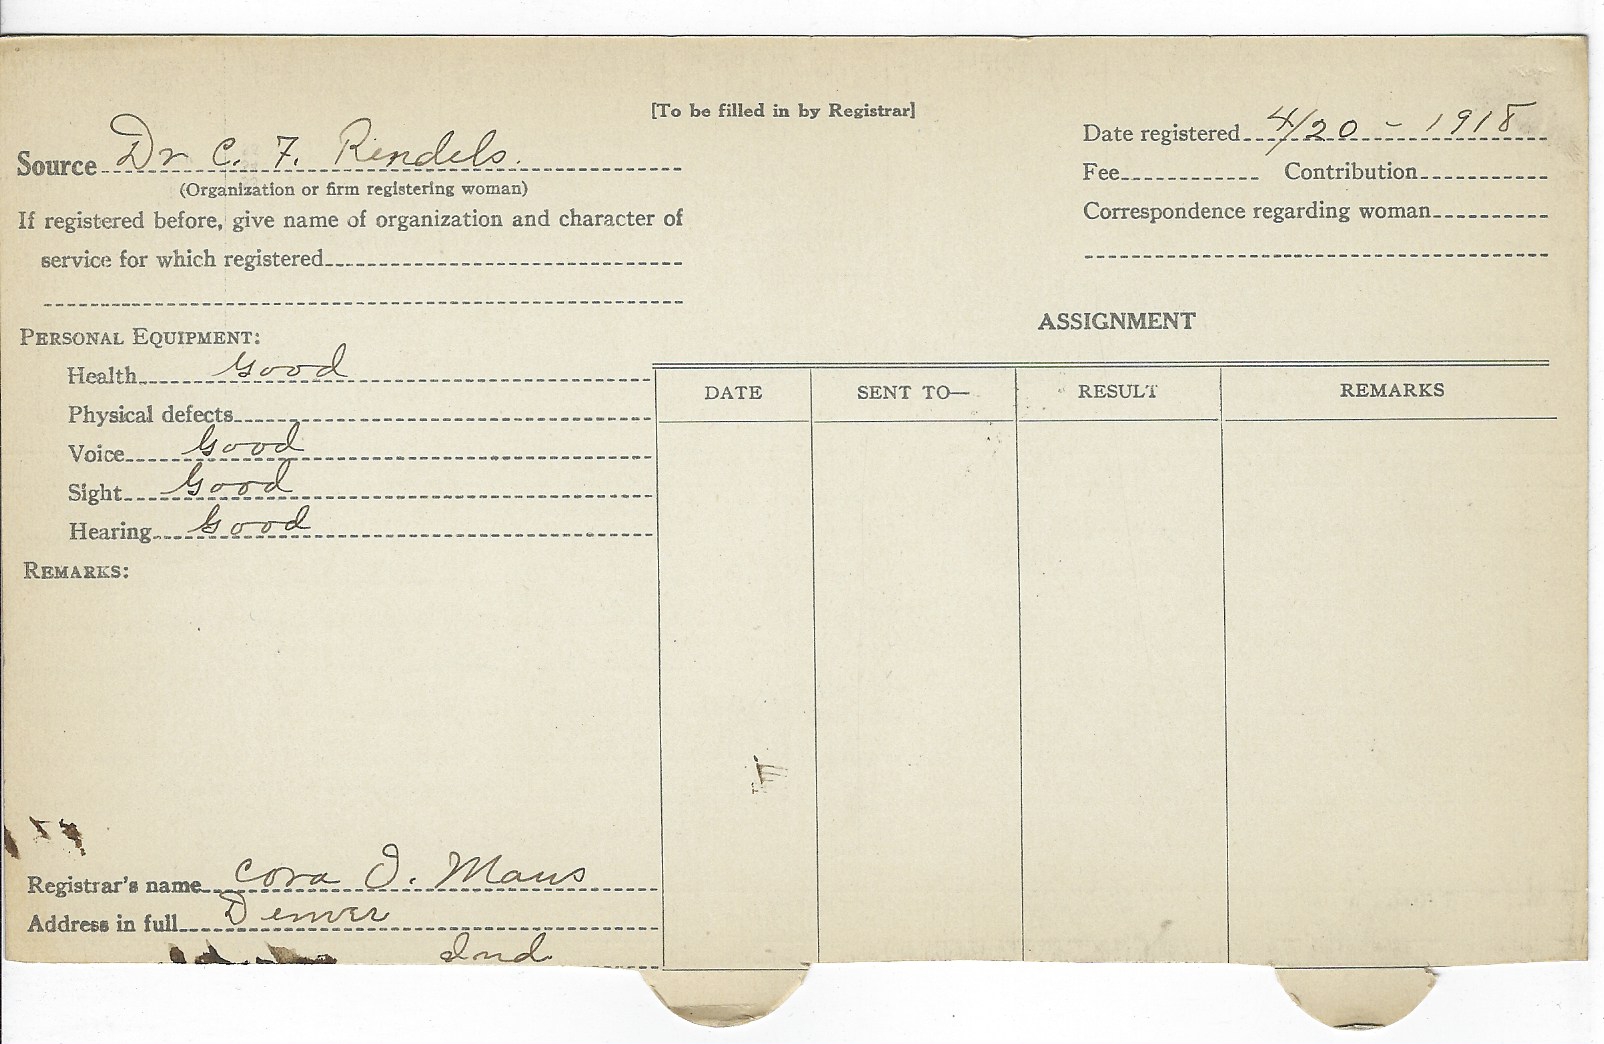 [To be filled in by Registrar]
Source Dr C. F. Rendels.
(Organization or firm registering woman)
If registered before, give name of organization and character of
service for which registered
Date registered 4/20 - 1918
Fee Contribution
Correspondence regarding woman
PERSONAL EQUIPMENT:
Health Good
Physical defects
Voice Good
Sight Good
Hearing Good
REMARKS:
ASSIGNMENT
DATE SENT TO— RESULT REMARKS
Registrar's name Cora O. Maus
Address in full Denver
Ind.